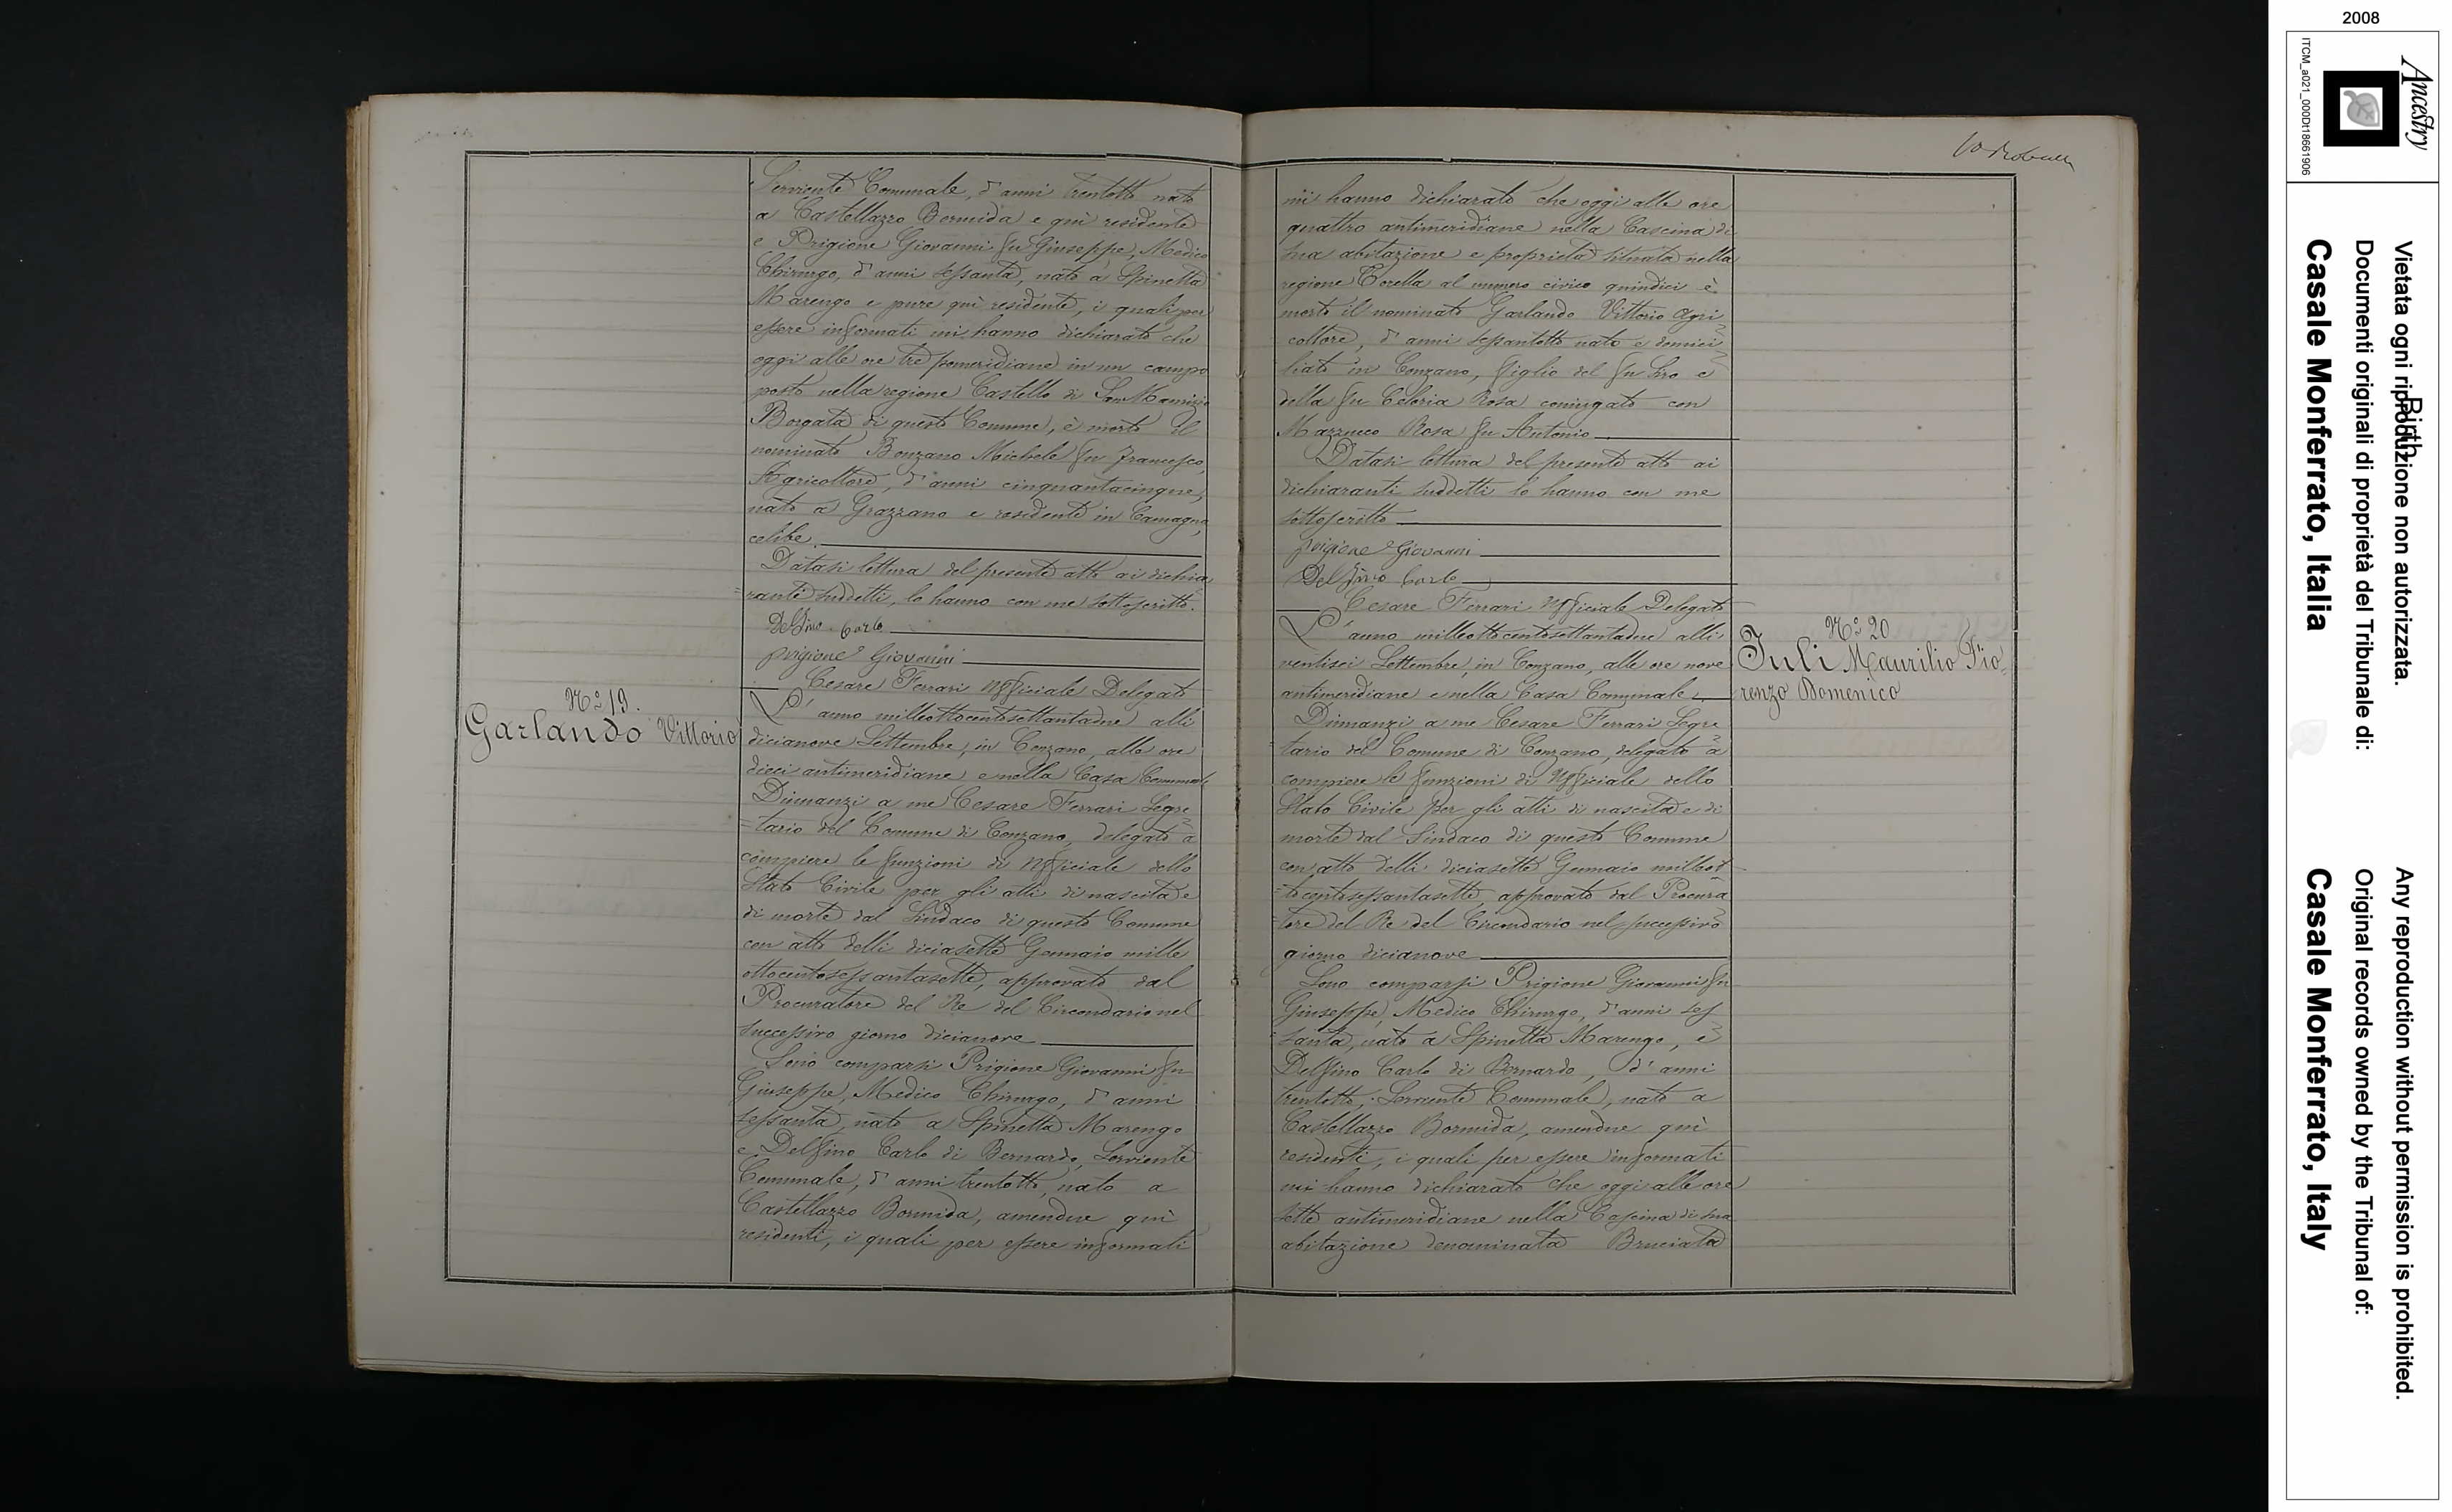 Serviente Comunale, d'anni trentotto nato
a Castellazzo Bormida e quì residente
e Prigione Giovanni fu Giuseppe, Medico
Chirurgo, d'anni sessanta, nato a Spinetta
Marengo e pure quì residente, i quali per
essere informati mi hanno dichiarato che
oggi alle ore tre pomeridiane in un campo
posto nella regione Castello di San Maurizio
Borgata di questo Comune, è morto il
nominato Bonzano Michele fu Francesco,
Agricoltore, d'anni cinquantacinque,
nato a Grazzano e residente in Camagna,
celibe.
Datasi lettura del presente atto ai dichia
=ranti suddetti, lo hanno con me sottoscritto.
Delfino Carlo
prigione Giovanni
Cesare Ferrari Uffiziale Delegato
Nº 19.
Garlando Vittorio
L'anno milleottocentosettantadue alli
dicianove Settembre, in Conzano, alle ore
dieci antimeridiane e nella Casa Comunale
Dinnanzi a me Cesare Ferrari Segre
=tario del Comune di Conzano, delegato a
compiere le funzioni di Uffiziale dello
Stato Civile per gli atti di nascita e
di morte dal Sindaco di questo Comune
con atto delli diciasette Gennaio mille
ottocentosessantasette, approvato dal
Procuratore del Re del Circondario nel
successivo giorno dicianove
Sono comparsi Prigione Giovanni fu
Giuseppe, Medico Chirurgo, d'anni
sessanta, nato a Spinetta Marengo
e Delfino Carlo di Bernardo, Serviente
Comunale, d'anni trentotto, nato a
Castellazzo Bormida, amendue quì
residenti, i quali per essere informati
mi hanno dichiarato che oggi alle ore
quattro antimeridiane nella Cascina di
sua abitazione e proprietà situata nella
regione Torella al numero civico quindici è
morto il nominato Garlando Vittorio Agri
coltore, d'anni sessantotto nato e domici
liato in Conzano, figlio del fu Siro e
della fu Celoria Rosa coniugato con
Mazzucco Rosa fu Antonio
Datasi lettura del presente atto ai
dichiaranti suddetti lo hanno con me
sottoscritto
prigione Giovanni
Delfino Carlo
Cesare Ferrari Uffiziale Delegato
L'anno milleottocentosettantadue alli
ventisei Settembre, in Conzano, alle ore nove
antimeridiane e nella Casa Comunale
Dinnanzi a me Cesare Ferrari Segre
=tario del Comune di Conzano, delegato a
compiere le funzioni di Uffiziale dello
Stato Civile per gli atti di nascita e di
morte dal Sindaco di questo Comune
con atto delli diciasette Gennaio milleot
=tocentosessantasette, approvato dal Procura
=tore del Re del Circondario nel successivo
giorno dicianove
Sono comparsi Prigione Giovanni fu
Giuseppe, Medico Chirurgo, d'anni ses
=santa, nato a Spinetta Marengo, e
Delfino Carlo di Bernardo, d'anni
trentotto, Serviente Comunale, nato a
Castellazzo Bormida, amendue quì
residenti, i quali per essere informati
mi hanno dichiarato che oggi alle ore
sette antimeridiane nella Cascina di sua
abitazione denominata Bruciata
Nº 20
Juli Maurilio Fio=
renzo Domenico
2008
Ancestry
ITCM_a021_000Dt18661906
Birth
Vietata ogni riproduzione non autorizzata.
Documenti originali di proprietà del Tribunale di:
Casale Monferrato, Italia
Any reproduction without permission is prohibited.
Original records owned by the Tribunal of:
Casale Monferrato, Italy